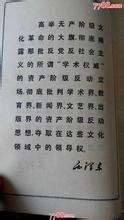 高举无产阶级文
化革命的大旗，彻底揭
露那批反党反社会主
义的所谓“学术权威”
的资产阶级反动立
场，彻底批判学术界、教
育界、新闻界、文艺界、出
版界的资产阶级反动
思想，夺取在这些文化
领域中的领导权。
毛泽东